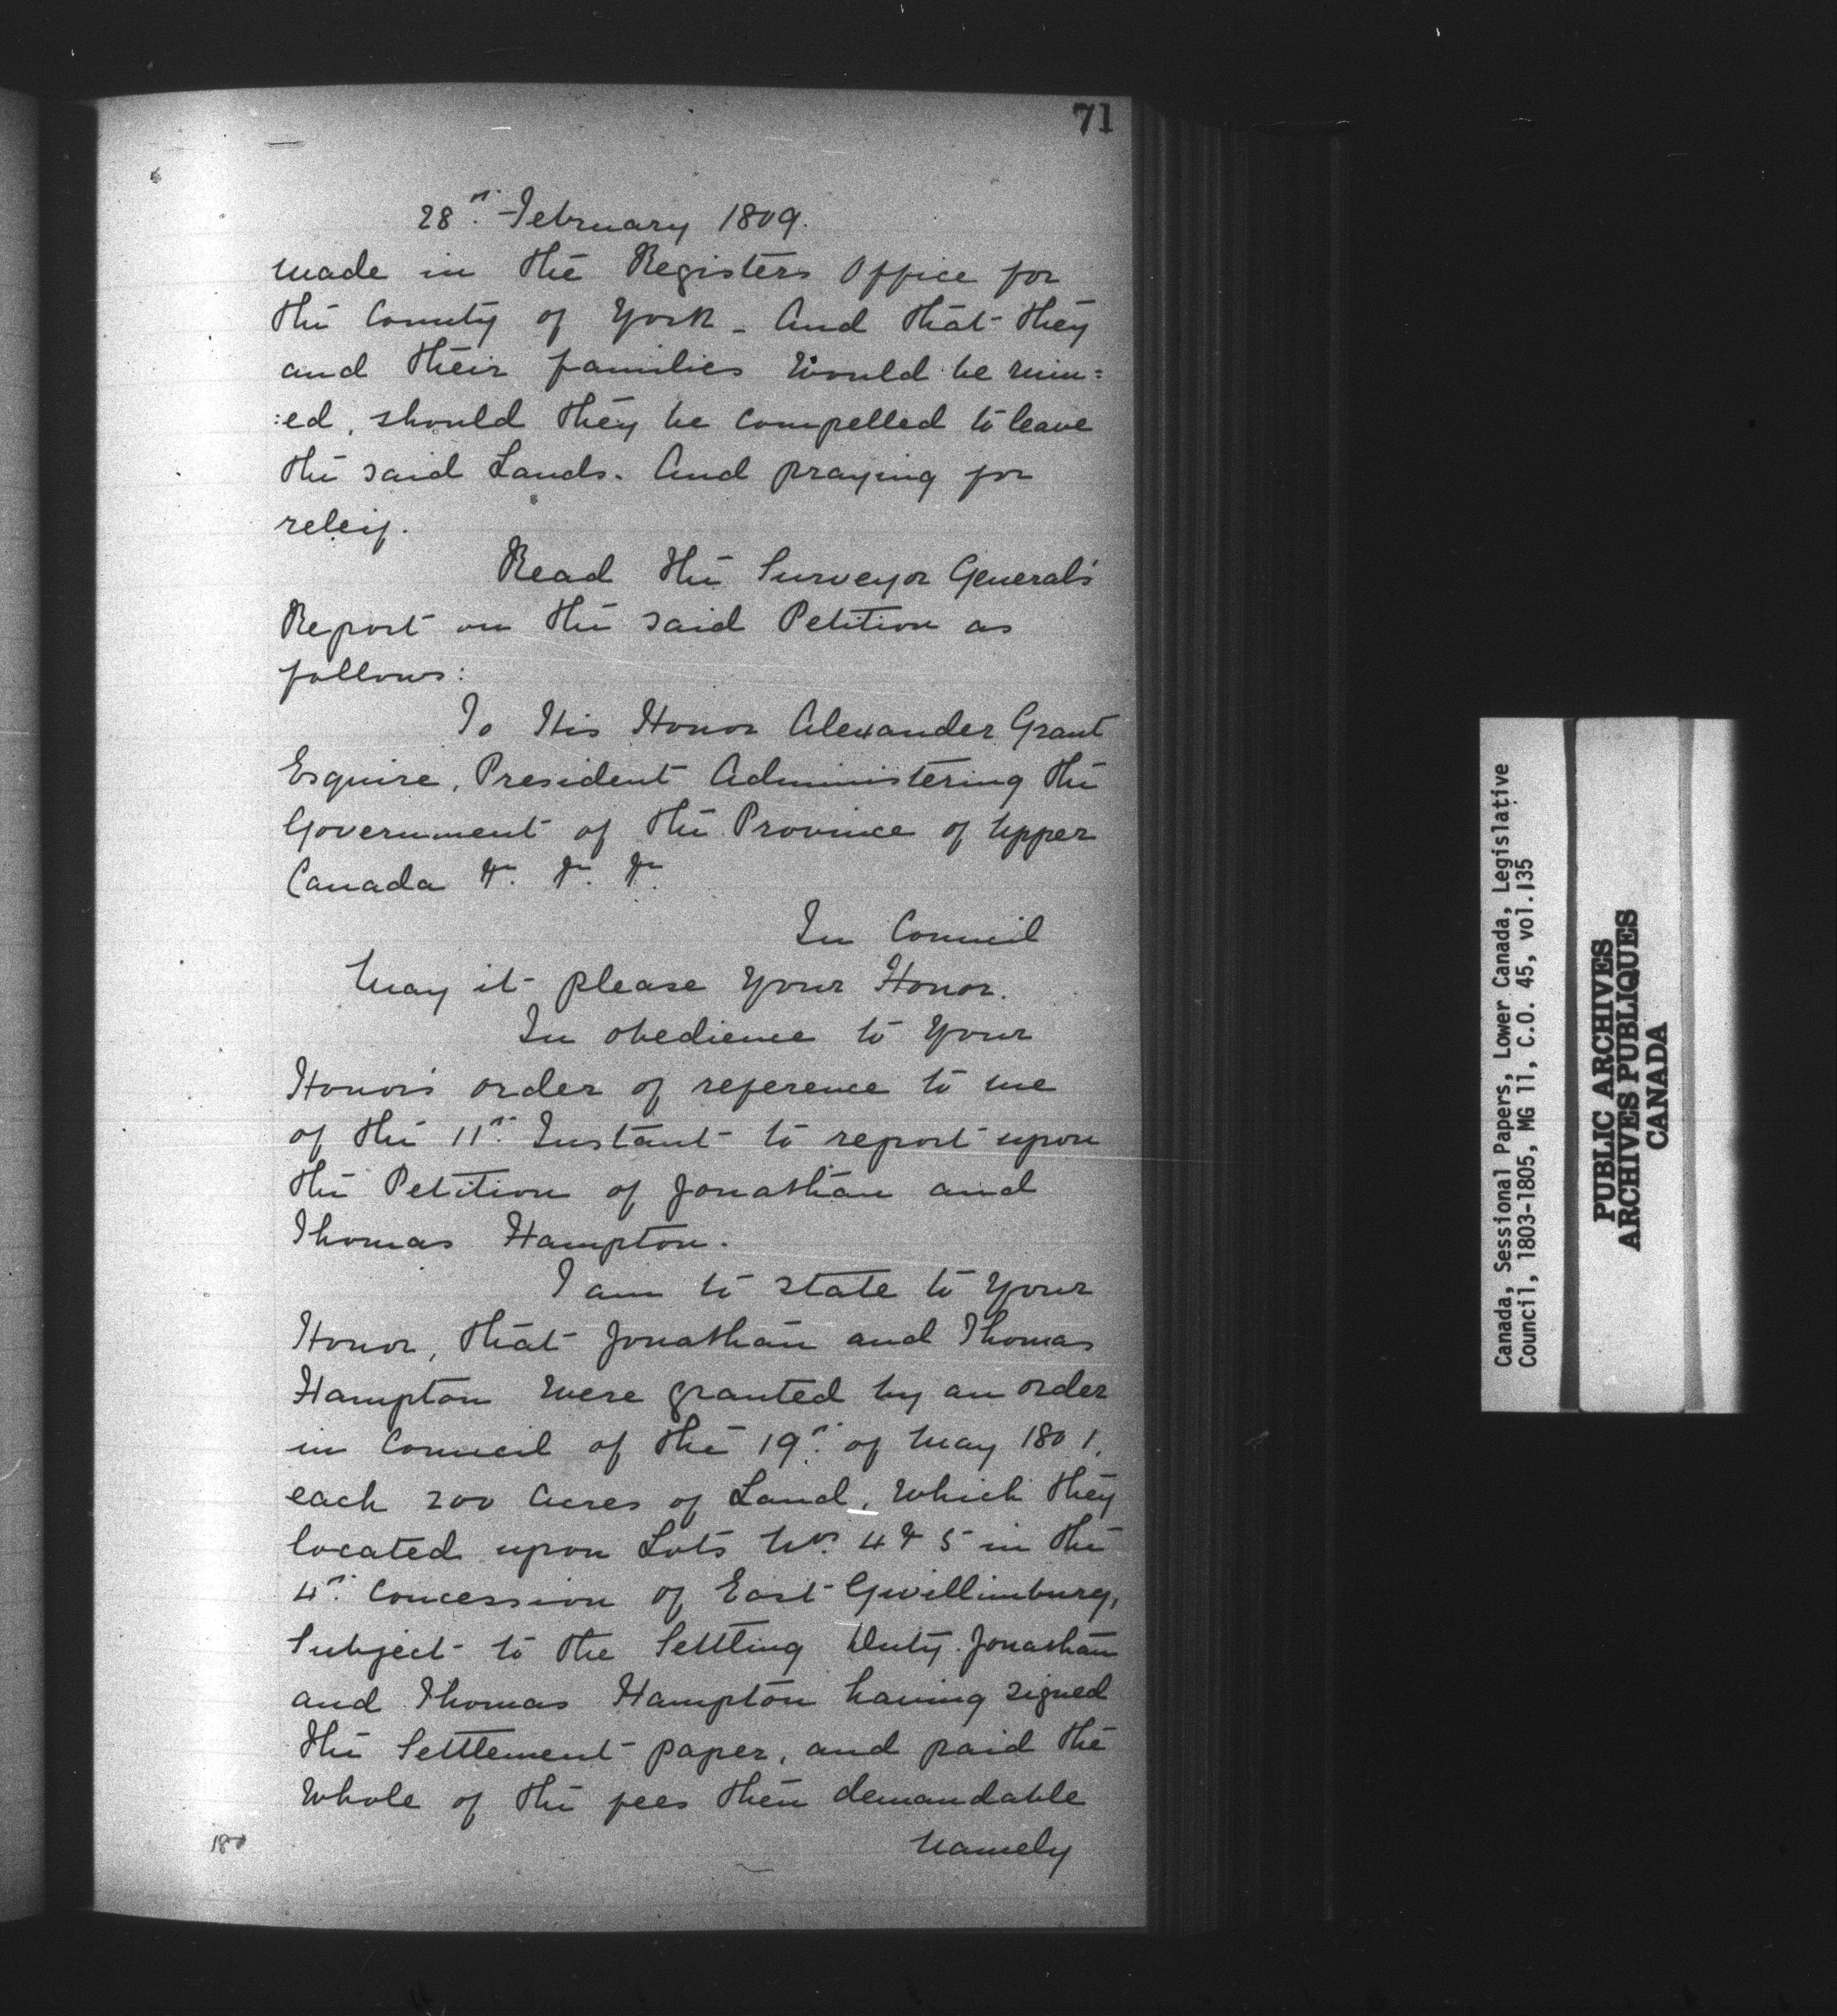 71
28th February 1809.
made in the Registers Office for
the County of York - And that they
and their families Would be ruin=
:ed, should they be compelled to leave
the said Lands. And praying for
releif.
Read the Surveyor General's
Report on the said Petition as
follows:
To His Honor Alexander Grant
Esquire, President Administering the
Government of the Province of Upper
Canada &c. &c. &c.
In Council
May it please Your Honor.
In obedience to Your
Honor's order of reference to me
of the 11th Instant to report upon
the Petition of Jonathan and
Thomas Hampton.
I am to state to Your
Honor, that Jonathan and Thomas
Hampton Were granted by an order
in Council of the 19th of May 1801,
each 200 Acres of Land, Which they
located upon Lots Nos. 4 & 5 in the
4th Concession of East Gwillimburg,
Subject to the Settling Duty. Jonathan
and Thomas Hampton having signed
the Settlement paper, and paid the
Whole of the fees then demandable
Namely
180
Canada, Sessional Papers, Lower Canada, Legislative
Council, 1803-1805, MG 11, C.O. 45, vol.135
PUBLIC ARCHIVES
ARCHIVES PUBLIQUES
CANADA